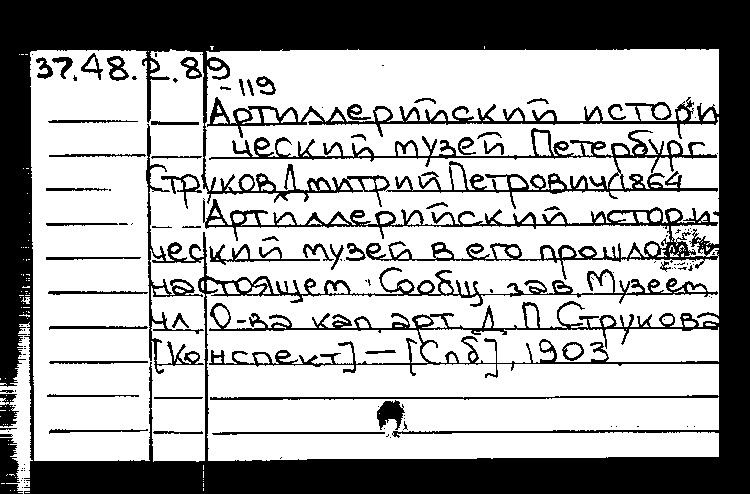 37.48.2.89
-119
Артиллерийский истори
ческий музей. Петербург
Струков Дмитрий Петрович (1864
Артиллерийский истори-
ческий музей в его прошлом и
настоящем: Сообщ. зав. Музеем
чл. О-ва кап. арт. Д. П. Струкова
[Конспект]. — [Спб.], 1903